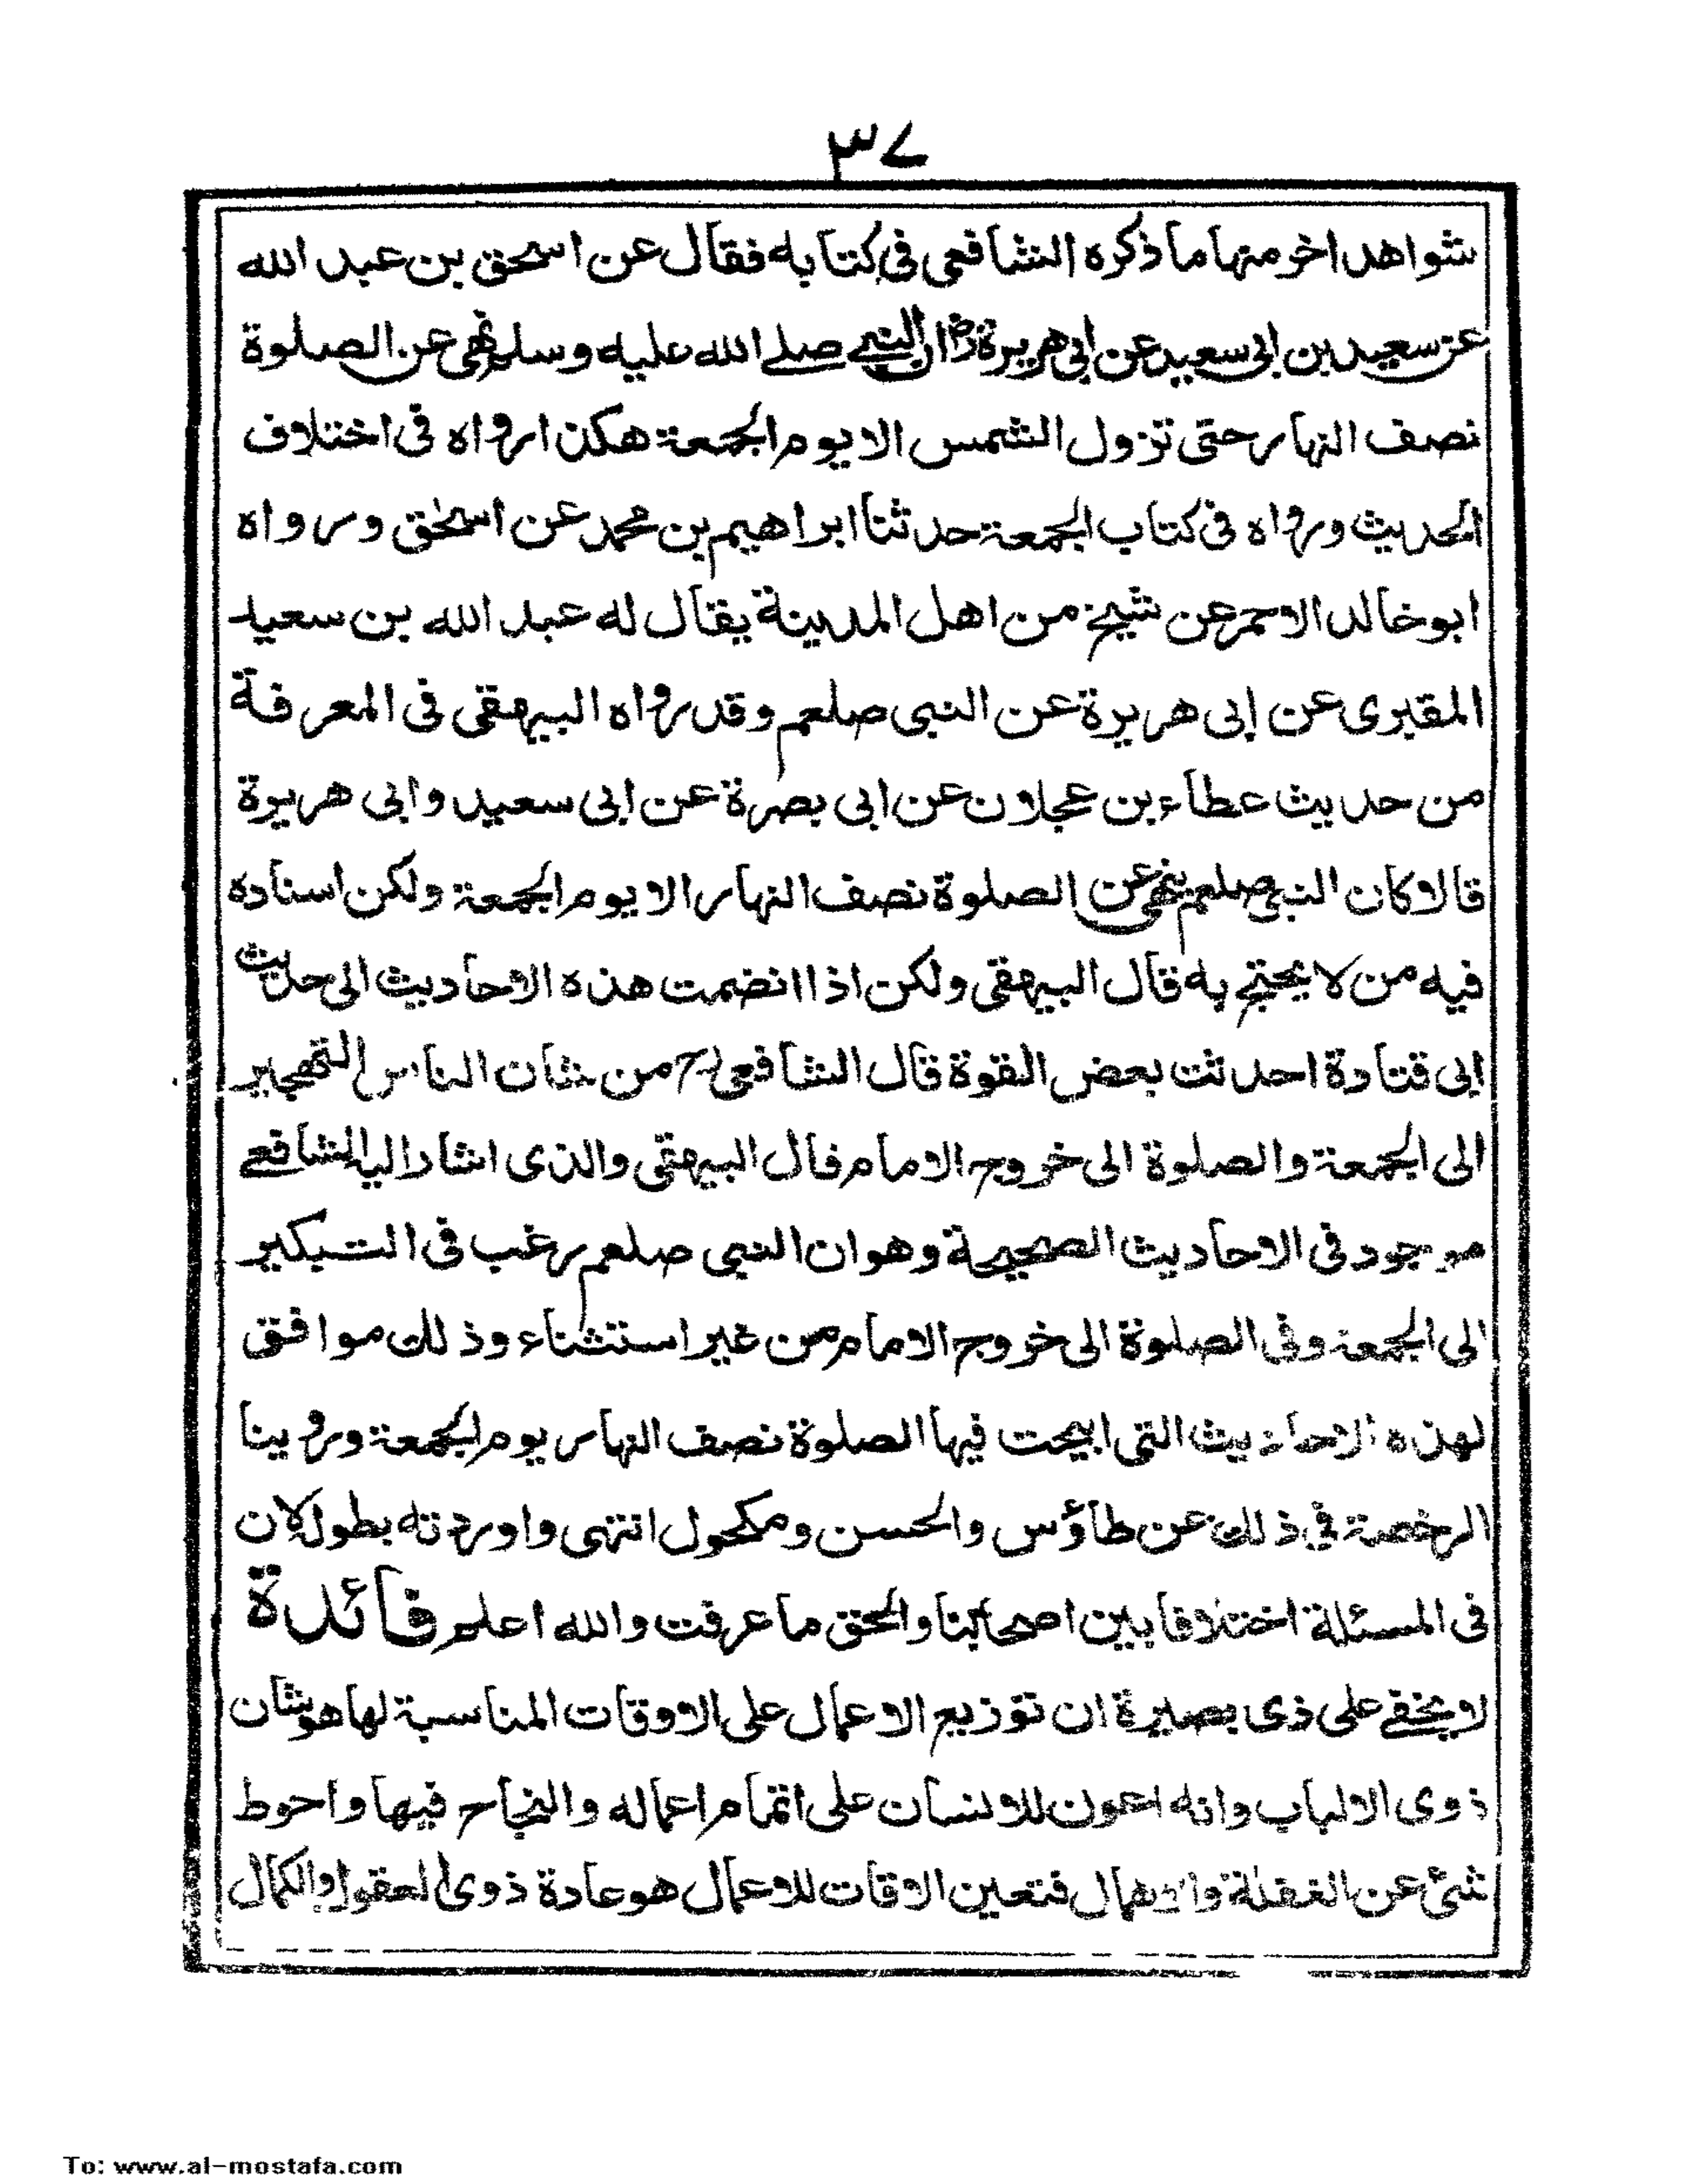 ٣٧
شواهد اخر منها ما ذكره الشافعى فى كتابه فقال عن اسحق بن عبد الله
عن سعيد بن ابى سعيد عن ابى هريرة رض ان النبى صلى الله عليه وسلم نهى عن الصلوة
نصف النهار حتى تزول الشمس الا يوم الجمعة هكذا رواه فى اختلاف
الحديث ورواه فى كتاب الجمعة حدثنا ابراهيم بن محمد عن اسحٰق ورواه
ابو خالد الاحمر عن شيخ من اهل المدينة يقال له عبد الله بن سعيد
المقبرى عن ابى هريرة عن النبى صلعم وقد رواه البيهقى فى المعرفة
من حديث عطاء بن عجلان عن ابى بصرة عن ابى سعيد وابى هريرة
قالا كان النبى صلعم ينهى عن الصلوة نصف النهار الا يوم الجمعة ولكن اسناده
فيه من لا يحتج به قال البيهقى ولكن اذا انضمت هذه الاحاديث الى حديث
ابى قتادة احدثت بعض القوة قال الشافعى رح من شان الناس التهجير
الى الجمعة والصلوة الى خروج الامام قال البيهقى والذى اشار اليه الشافعى
موجود فى الاحاديث الصحيحة وهو ان النبى صلعم رغب فى التبكير
الى الجمعة وفى الصلوة الى خروج الامام من غير استثناء وذلك موافق
لهذه الاحاديث التى ابيحت فيها الصلوة نصف النهار يوم الجمعة وروينا
الرخصة فى ذلك عن طاؤس والحسن ومكحول انتهى واوردته بطوله لان
فى المسئلة اختلافا بين اصحابنا والحق ما عرفت والله اعلم فائدة
لا يخفى على ذى بصيرة ان توزيع الاعمال على الاوقات المناسبة لها هو شان
ذوى الالباب وانه اعون للانسان على اتمام اعماله والنجاح فيها واحوط
شئ عن الغفلة والاهمال فتعين الاقات للاعمال هو عادة ذوى العقول والكمال
To: www.al-mostafa.com